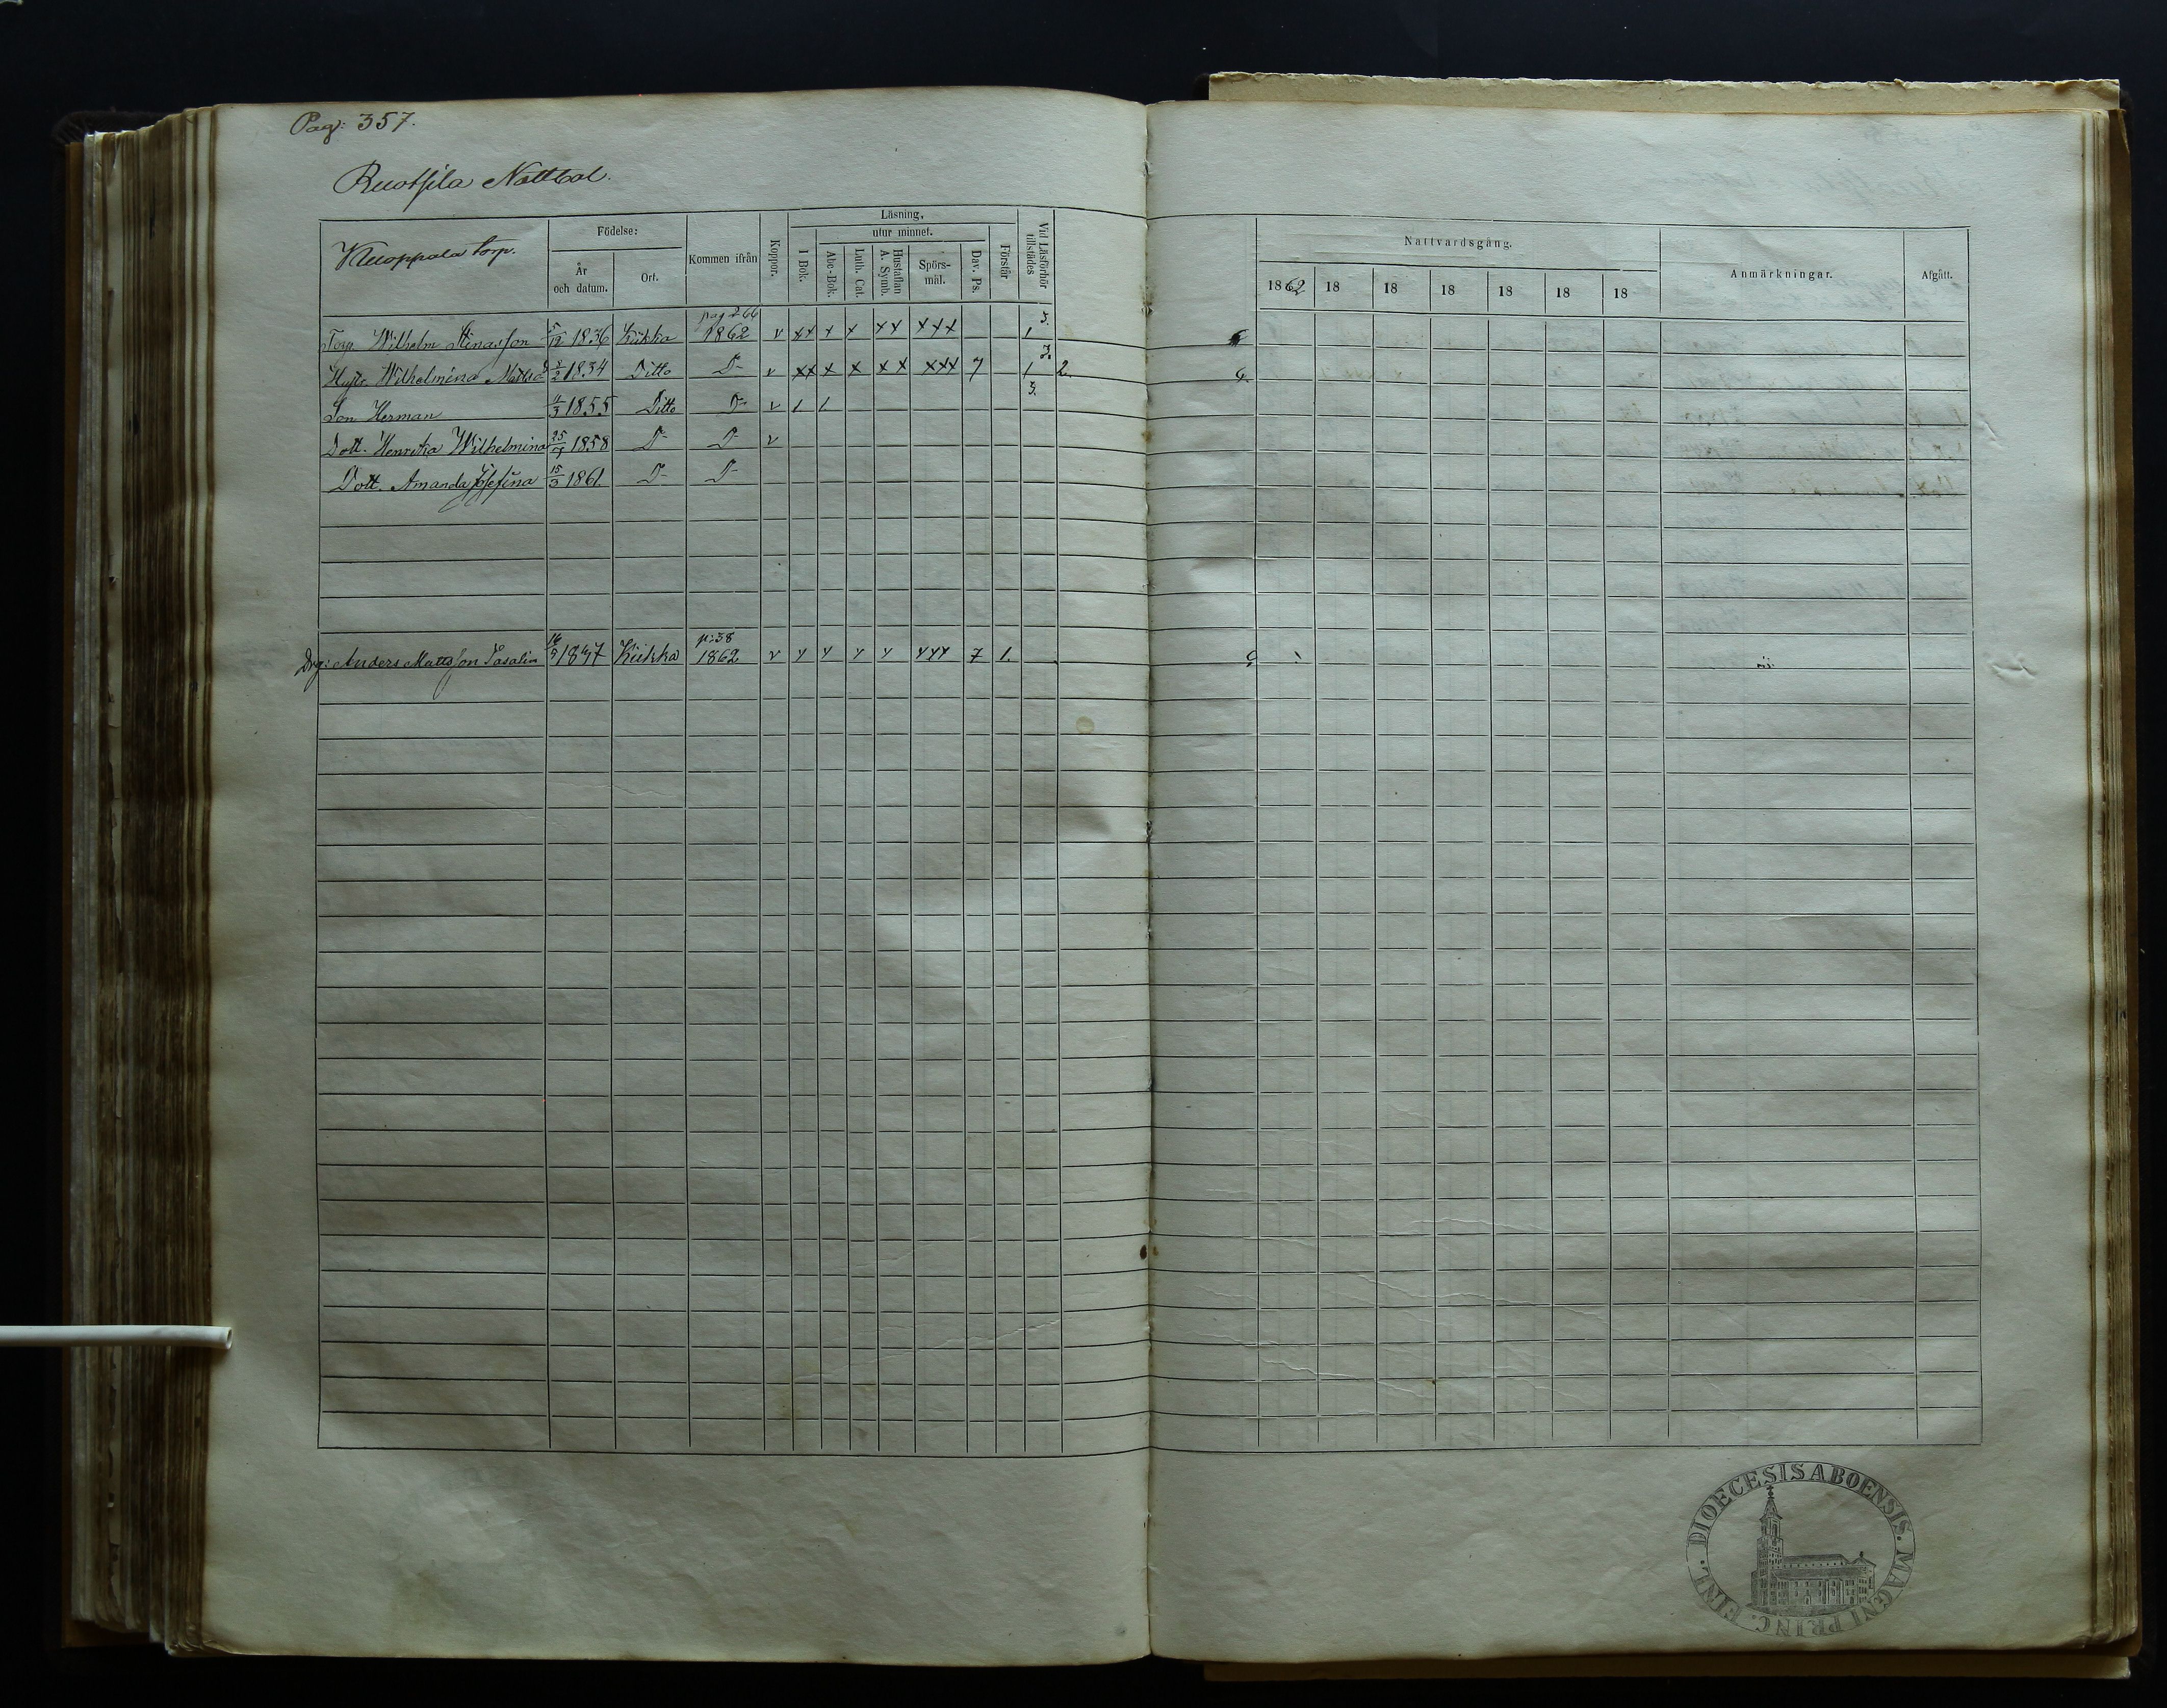 Pag: 357.
Ruotsila Nattbol.
Knoppala torp.
Födelse:
År och datum.
Ort.
Kommen ifrån
Koppor.
Läsning,
utur minnet.
I Bok.
Abc-Bok.
Luth. Cat.
Hustaflan A. Symb.
Spörsmål.
Dav. Ps.
Förstår
Vid Läsförhör tillstädes
Nattvardsgång.
1862 18 18 18 18 18 18
Anmärkningar.
Afgått.
pag 266
Torp. Wilhelm 12 1836 Kiikka 1862 v xx x x xx xxx 1 3.
Hust: Wilhelmina Matts 2 1834 Ditto D- v xx x x xx xxx 7 1 3. 2.
Son Herman 11/3 1855 Ditto D- v 1 1 3.
Dott. Henrika Wilhelmina 25 1858 D- D- v
Dott. Amanda Josefina 15/3 1861 D- D-
p: 38
Drg: Anders Mattsson 16/9 1847 Kiikka 1862 v y y y y yyy 7 1.
DIOECESIS ABOENSIS. MAGNI PRINC. FINL.